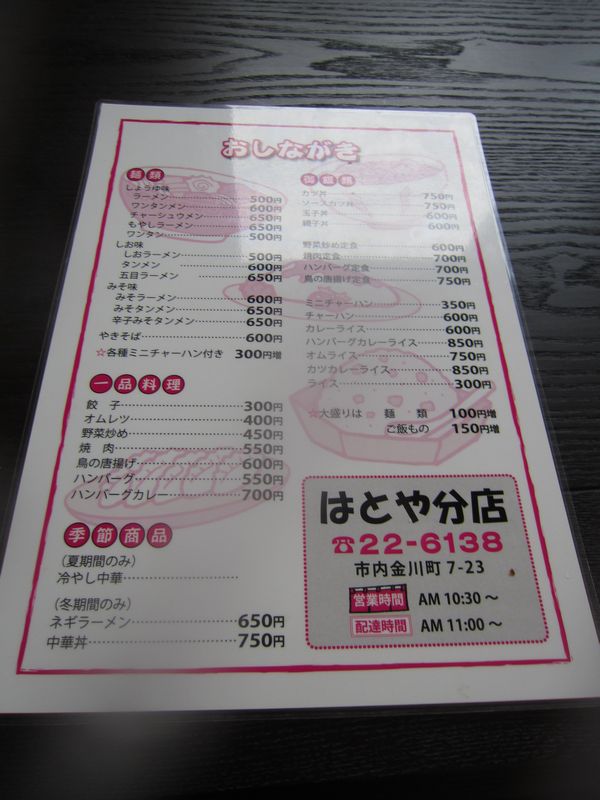 おしながき
麺類
しょうゆ味
ラーメン 500円
ワンタンメン 600円
チャーシュウメン 650円
もやしラーメン 650円
ワンタン 500円
しお味
しおラーメン 500円
タンメン 600円
五目ラーメン 650円
みそ味
みそラーメン 600円
みそタンメン 650円
辛子みそタンメン 650円
やきそば 600円
☆各種ミニチャーハン付き 300円増
一品料理
餃子 300円
オムレツ 400円
野菜炒め 450円
焼肉 550円
鳥の唐揚げ 600円
ハンバーグ 550円
ハンバーグカレー 700円
季節商品
(夏期間のみ)
冷やし中華
(冬期間のみ)
ネギラーメン 650円
中華丼 750円
御飯類
カツ丼 750円
ソースカツ丼 750円
玉子丼 600円
親子丼 600円
野菜炒め定食 600円
焼肉定食 700円
ハンバーグ定食 700円
鳥の唐揚げ定食 750円
ミニチャーハン 350円
チャーハン 600円
カレーライス 600円
ハンバーグカレーライス 850円
オムライス 750円
カツカレーライス 850円
ライス 300円
☆大盛りは 麺類 100円増
ご飯もの 150円増
はとや分店
☎22-6138
市内金川町 7-23
営業時間 AM 10:30～
配達時間 AM 11:00～